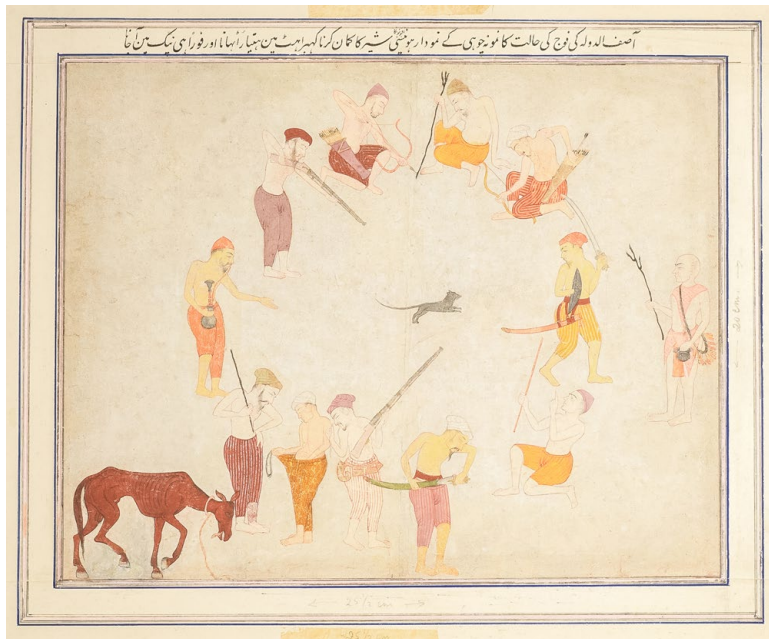 آصف الدولہ کی فوج کی حالت کا نمونہ چوہی کے نمودار ہونیسی شیر کا کمان کرنا کہبراہٹ مین ہتیار اٹہانا اور فورًا ہی مین آجانا